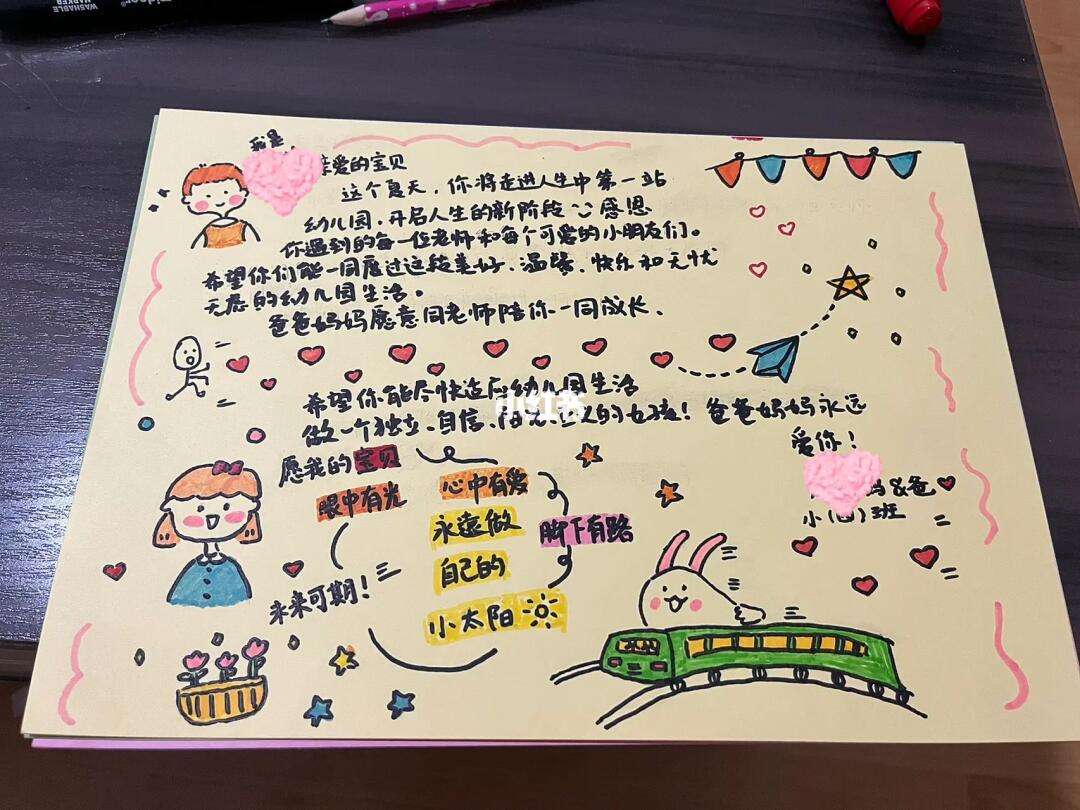 WASHABLE
MARKER
我是
亲爱的宝贝
这个夏天，你将走进人生中第一站
幼儿园，开启人生的新阶段 感恩
你遇到的每一位老师和每个可爱的小朋友们。
希望你们能一同度过这段美好、温馨、快乐和无忧
无虑的幼儿园生活。
爸爸妈妈愿意同老师陪你一同成长、
希望你能尽快适应幼儿园生活
做一个独立、自信、的女孩！爸爸妈妈永远
爱你！
小红书
妈&爸
小(四)班
愿我的宝贝
眼中有光
心中有爱
永远做
脚下有路
自己的
小太阳
未来可期！